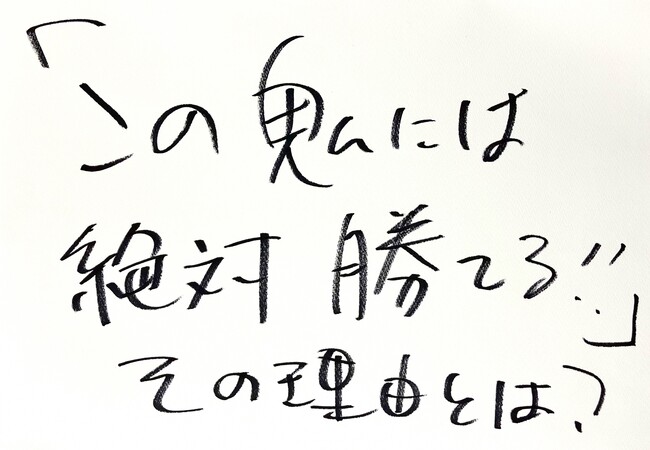 「この鬼には
絶対勝てる!!」
その理由とは?